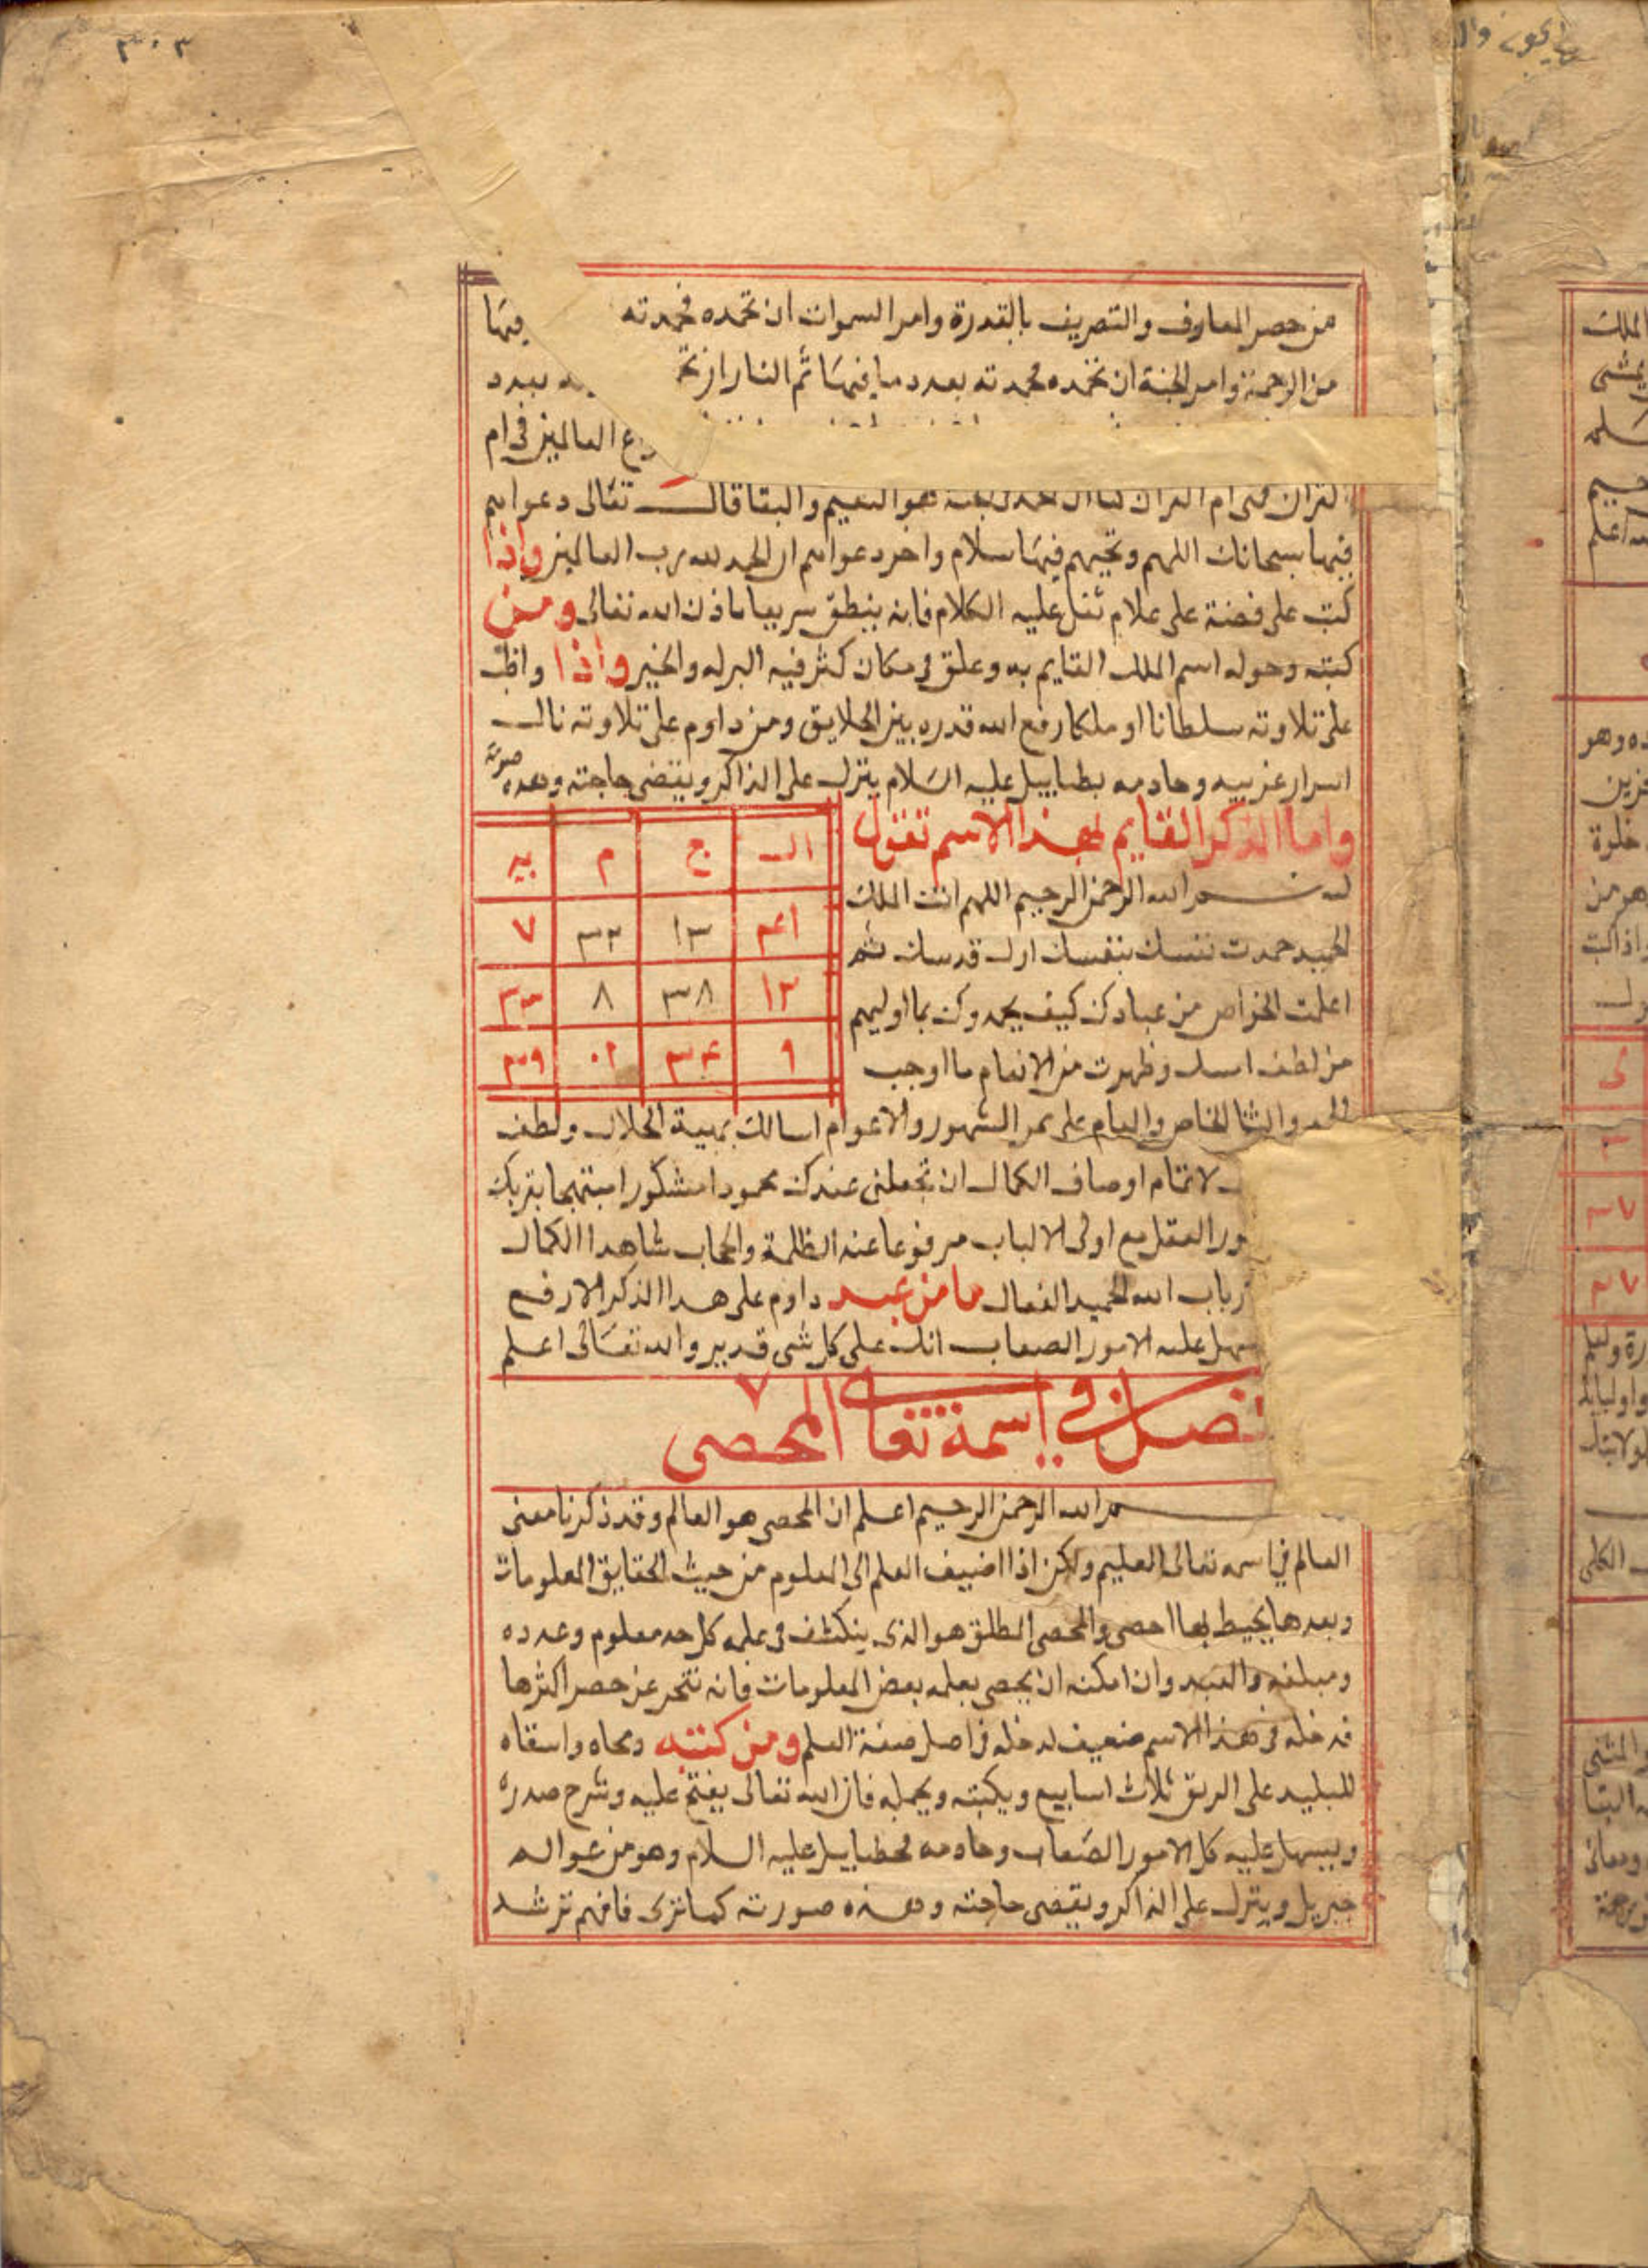 ٣٠٣
من حصر المعارف والتصريف بالقدرة وامر السموات ان تحمده فحمدته فيها
من الرحمة وامر الجنة ان تحمده فحمدته بعدد ما فيها ثم النار ان بعدد
العالمين فى ام
القران فهى ام القران هو النعيم والبقا قال تعالى دعواهم
فيها سبحانك اللهم وتحيتهم فيها سلام واخر دعواهم ان الحمد لله رب العالمين واذا
كتب على فضة على غلام ثقل عليه الكلام فانه ينطق سريعا باذن الله تعالى ومن
كتبه وحوله اسم الملك القايم به وعلق فى مكان كثر فيه البركه والخير واذا واظب
على تلاوته سلطانا او ملكا رفع الله قدره بين الخلايق ومن داوم على تلاوته نال
اسرار غريبه وخادمه بطياييل عليه السلام ينزل على الذاكر ويقضى حاجته وهذه صورته
واما الذكر القايم بهذا الاسم تقول
بسم الله الرحمن الرحيم اللهم انت الملك
الحميد حمدت نفسك بنفسك ازل قدسك ثم
اعلمت الخواص من عبادك كيف يحمدوك بما اوليتهم
من لطف وظهرت من الانعام ما اوجب
ال ج م يد
٤١ ١٣ ٣٢ ٧
١٢ ٣٨ ٨ ٣٣
٩ ٣٤ ١٠ ٣٩
الحمد والثنا الخاص والعام على ممر الشهور والاعوام اسالك بهيبة الجلال ولطف
لاتمام اوصاف الكمال ان تجعلنى عندك محمودا مشكورا مبتهجا بقربك
العقل مع اولى الالباب مرفوعا عنه الظلمة والحجاب شاهدا الكمال
الله الحميد الفعال ما من عبد داوم على هذا الذكر الارفع
سهل عليه الامور الصعاب انك على كل شى قدير والله تعالى اعلم
فصل فى اسمه تعالى المحصى
بسم الله الرحمن الرحيم اعلم ان المحصى هو العالم وقد ذكرنا معنى
العالم فى اسمه تعالى العليم ولكن اذا اضيف العلم الى المعلوم من حيث الحقايق المعلومات
وبعدها يحيط بها احصى والمحصى المطلق هو الذى ينكشف فى علمه كل حد معلوم وعدده
ومبلغه والعبد وان امكنه ان يحصى بعلمه بعض المعلومات فانه عن حصر اكثرها
فدخله فى هذا الاسم ضعيف لدخله فى اصل صفة العلم ومن كتبه ومحاه واسقاه
للبليد على الريق ثلاث اسابيع ويكتبه ويحمله فان الله تعالى يفتح عليه وشرح صدره
ويسهل عليه كل الامور الصعاب وخادمه محطياييل عليه السلام وهو من عوالم
جبريل وينزل على الذاكر ويقضى حاجته وهذه صورته كما ترى فافهم ترشد